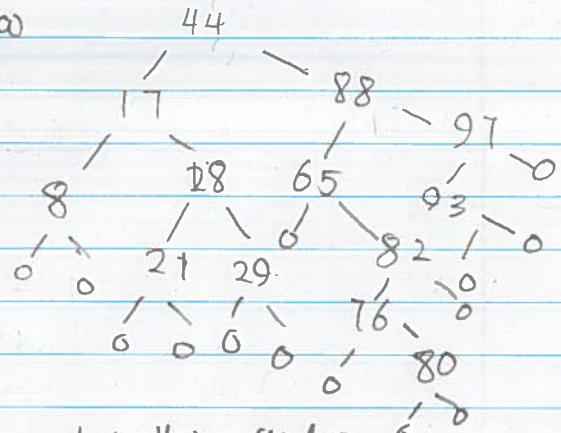 44
17 88
97
8 28 65 0
93
0 0 21 29 0 82 0
0
0 0 0 0 76 0
0 80
0